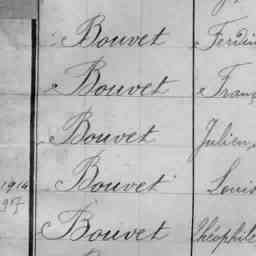 Bouvet Ferdin
Bouvet Franç
Bouvet Julien
Bouvet Louis
Bouvet Théophile